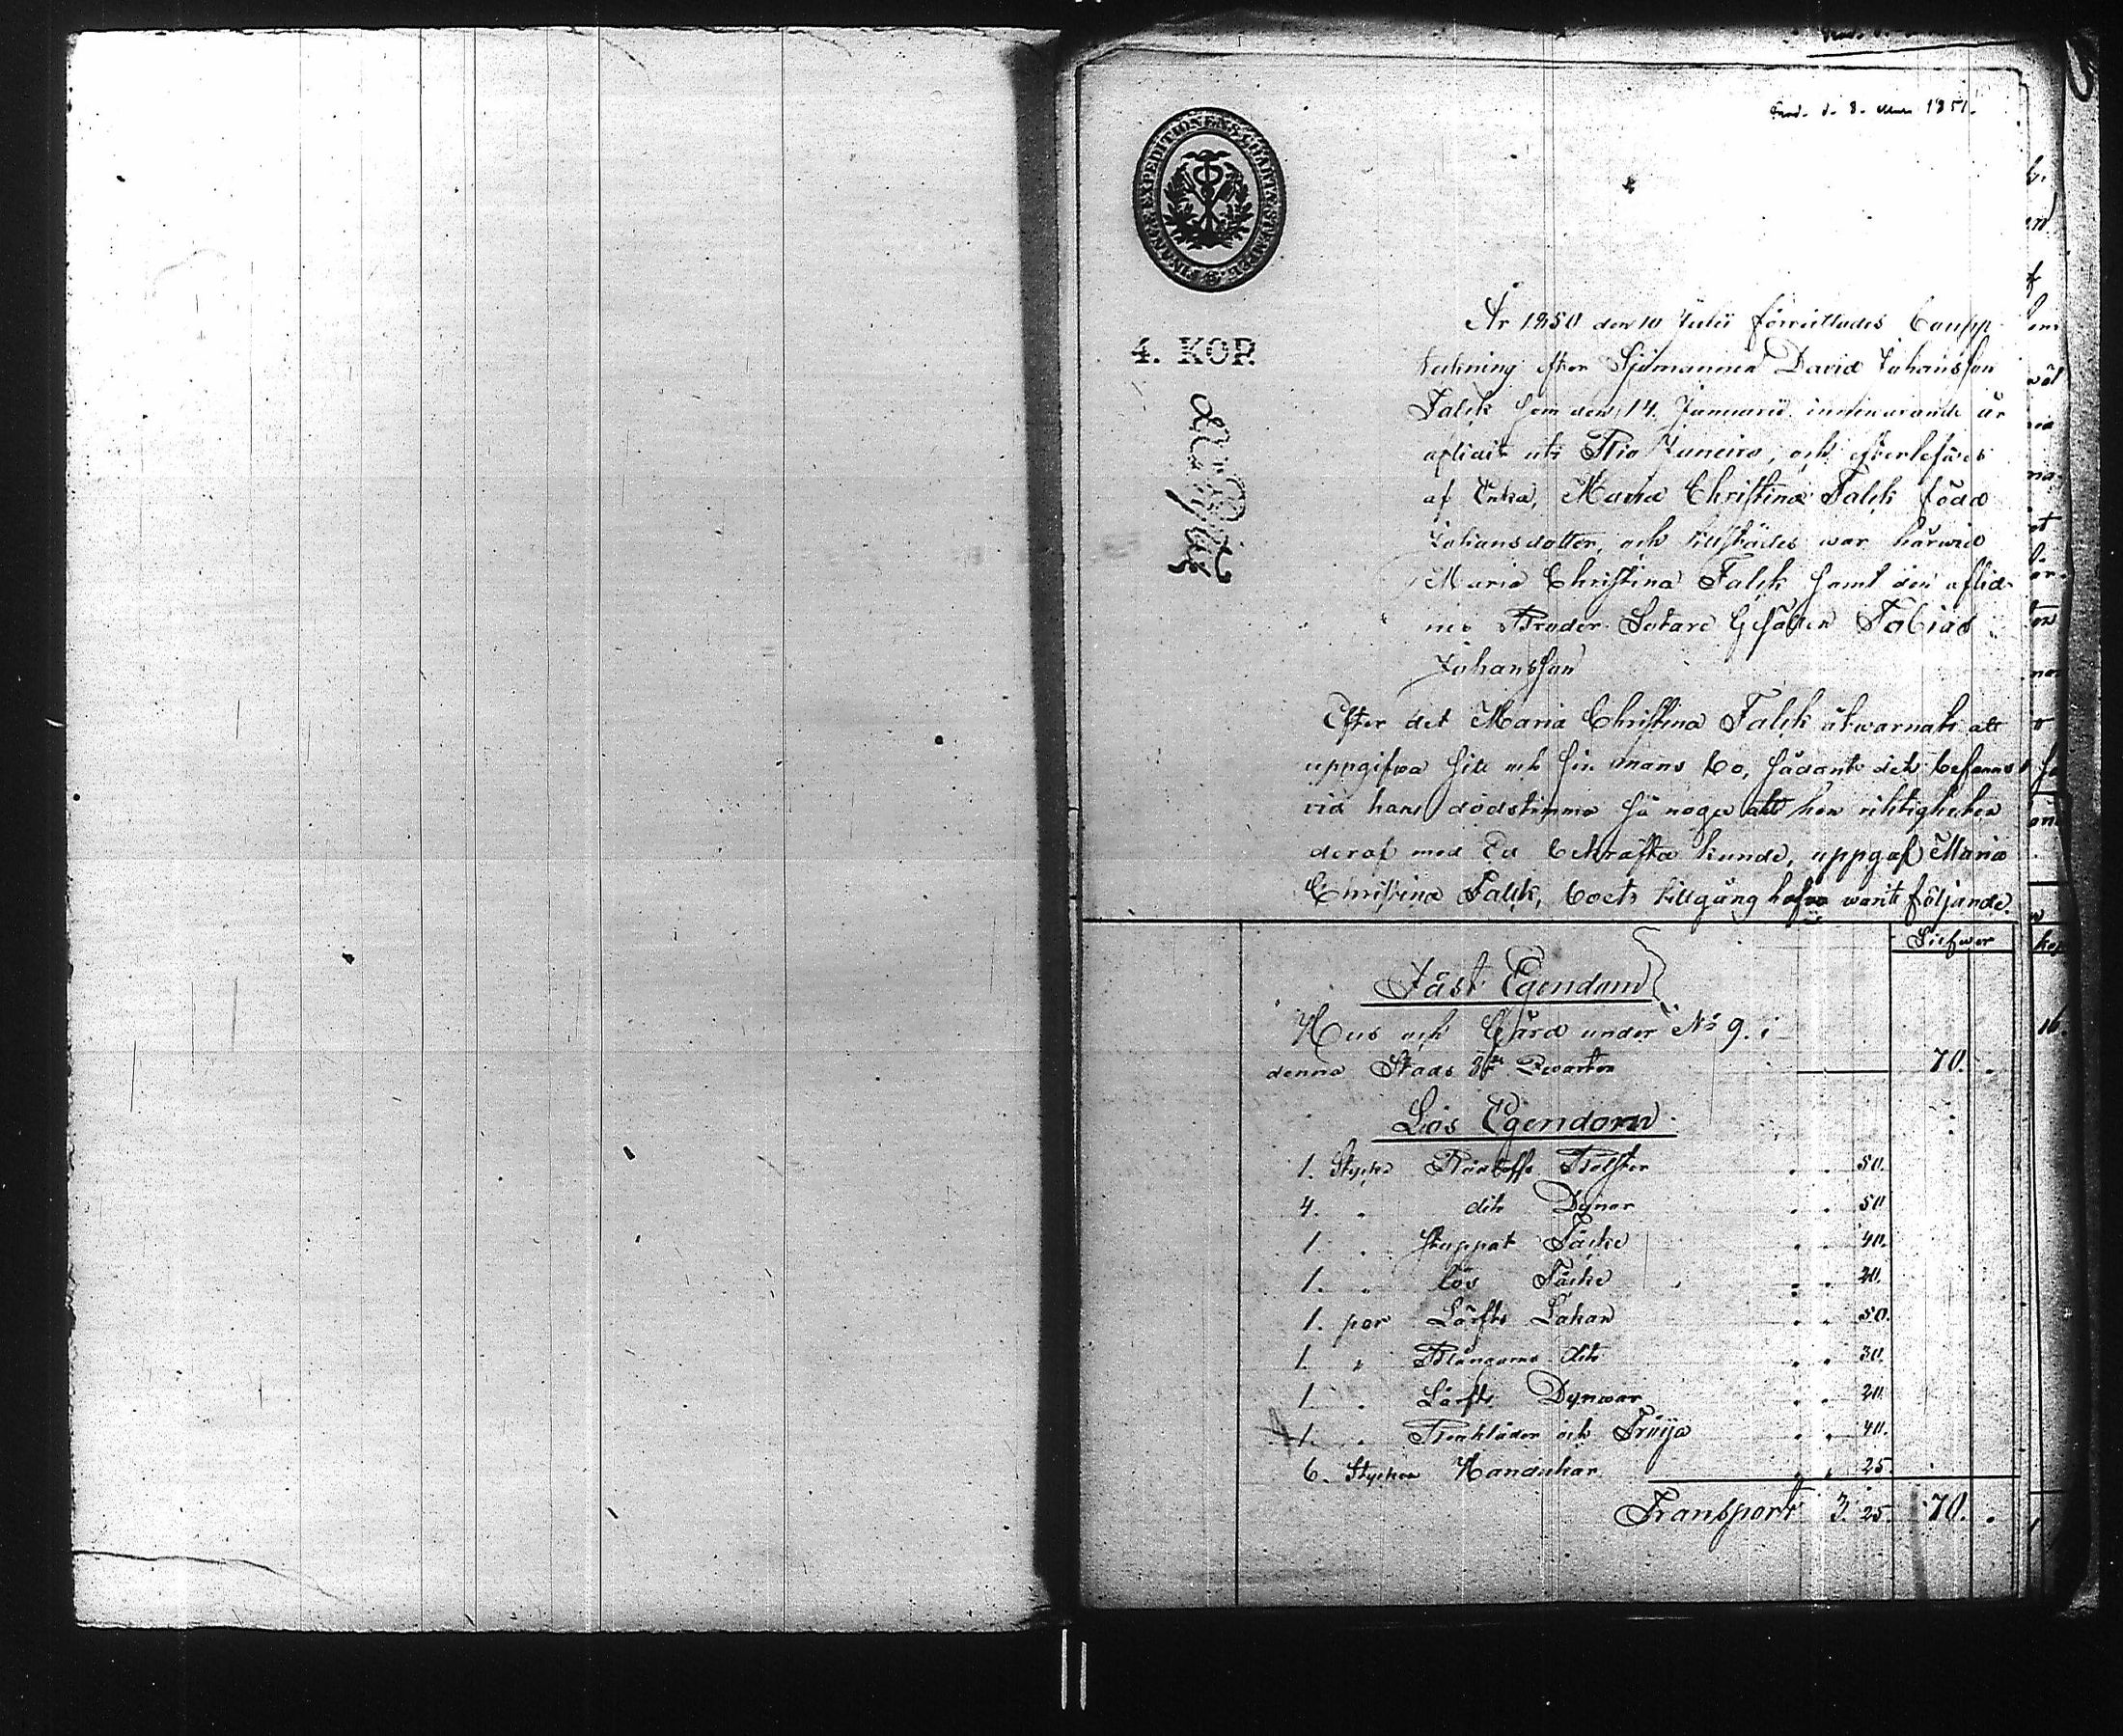 1851.
FINANCE EXPEDITIONENS CHARTÆ STEMPEL
4. KOP.
År 1850 den 10 Julii förrättades Coupp
teckning efter Sjömannen David Johansson
Falck som den 14. Januarii innevarande år
aflidit uti Rio Janeiro, och efterlefves
af Enka, Maria Christina Falck född
Johansdotter, och tillstädes war härwid
Maria Christina Falck samt den aflid-
nes Broder Sotare Gesällen Tobias
Johansson
Efter det Maria Christina Falck åtwarnats att
uppgifwa sitt och sin mans bo, sådant det befanns
vid hans dödstimma så noga att hon riktigheten
deraf med Ed bekräfta kunde, uppgaf Maria
Christina Falck, boets tillgång hafwa warit följande.
Silfwer
Fast Egendom
Hus och Gård under No 9. i
denna Stads 3dje Qwarter 70.
Lös Egendom
1. Stycke Bolster 50.
4. " dito Dynor 50
1. " stoppat Täcke 40.
1. " lös Täcke 20.
1. par Lärfts Lakan 50.
1. " Blångarns dito 30.
1. " Lärfts Dynwar 20
1. " och Tröija 40.
6. Stycken Handukar 25.
Transport 3. 25. 70.